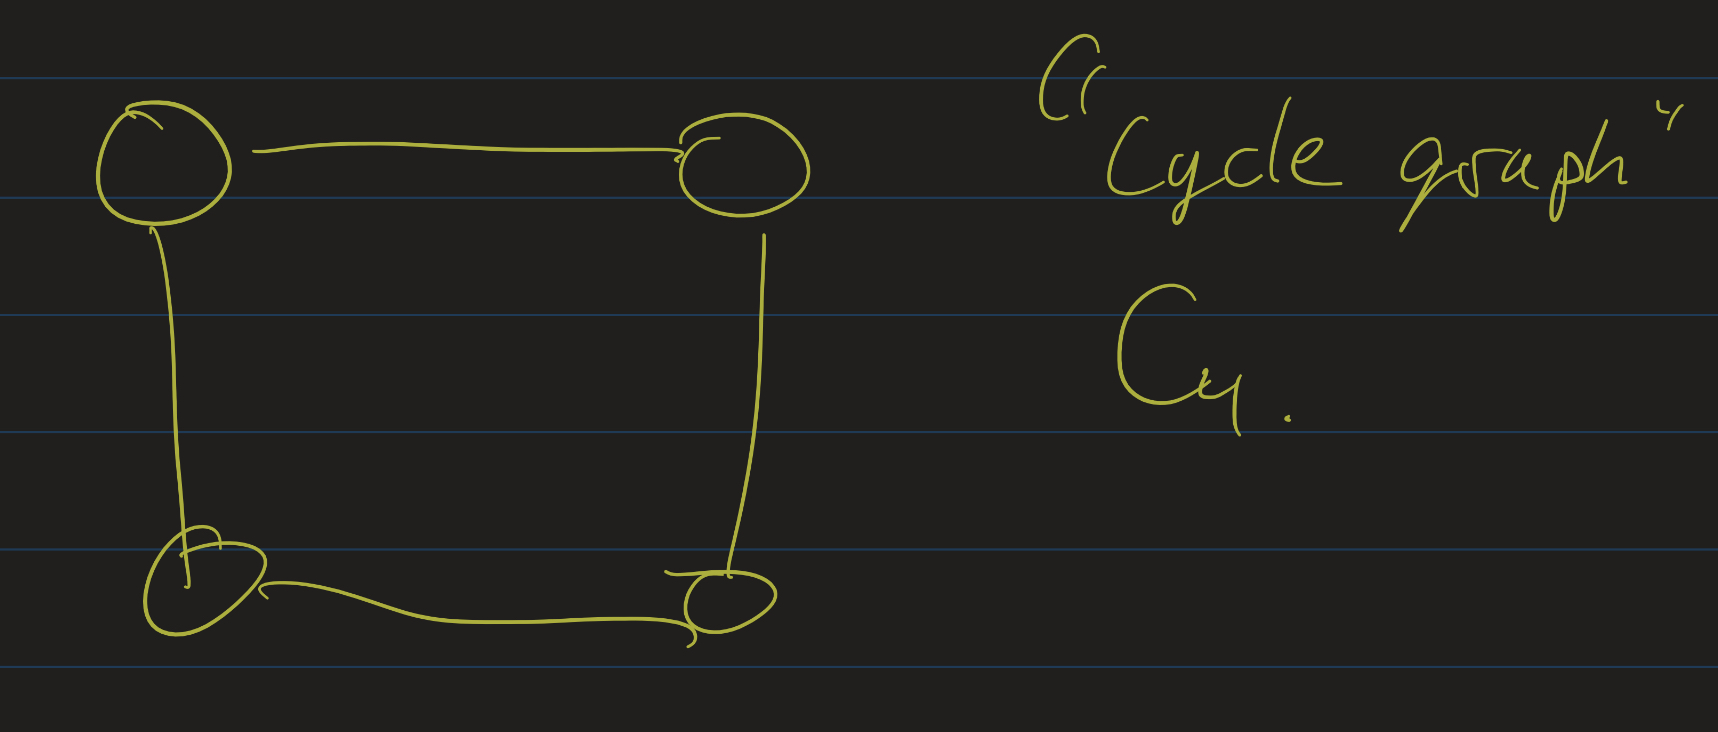 "Cycle graph"
C4.